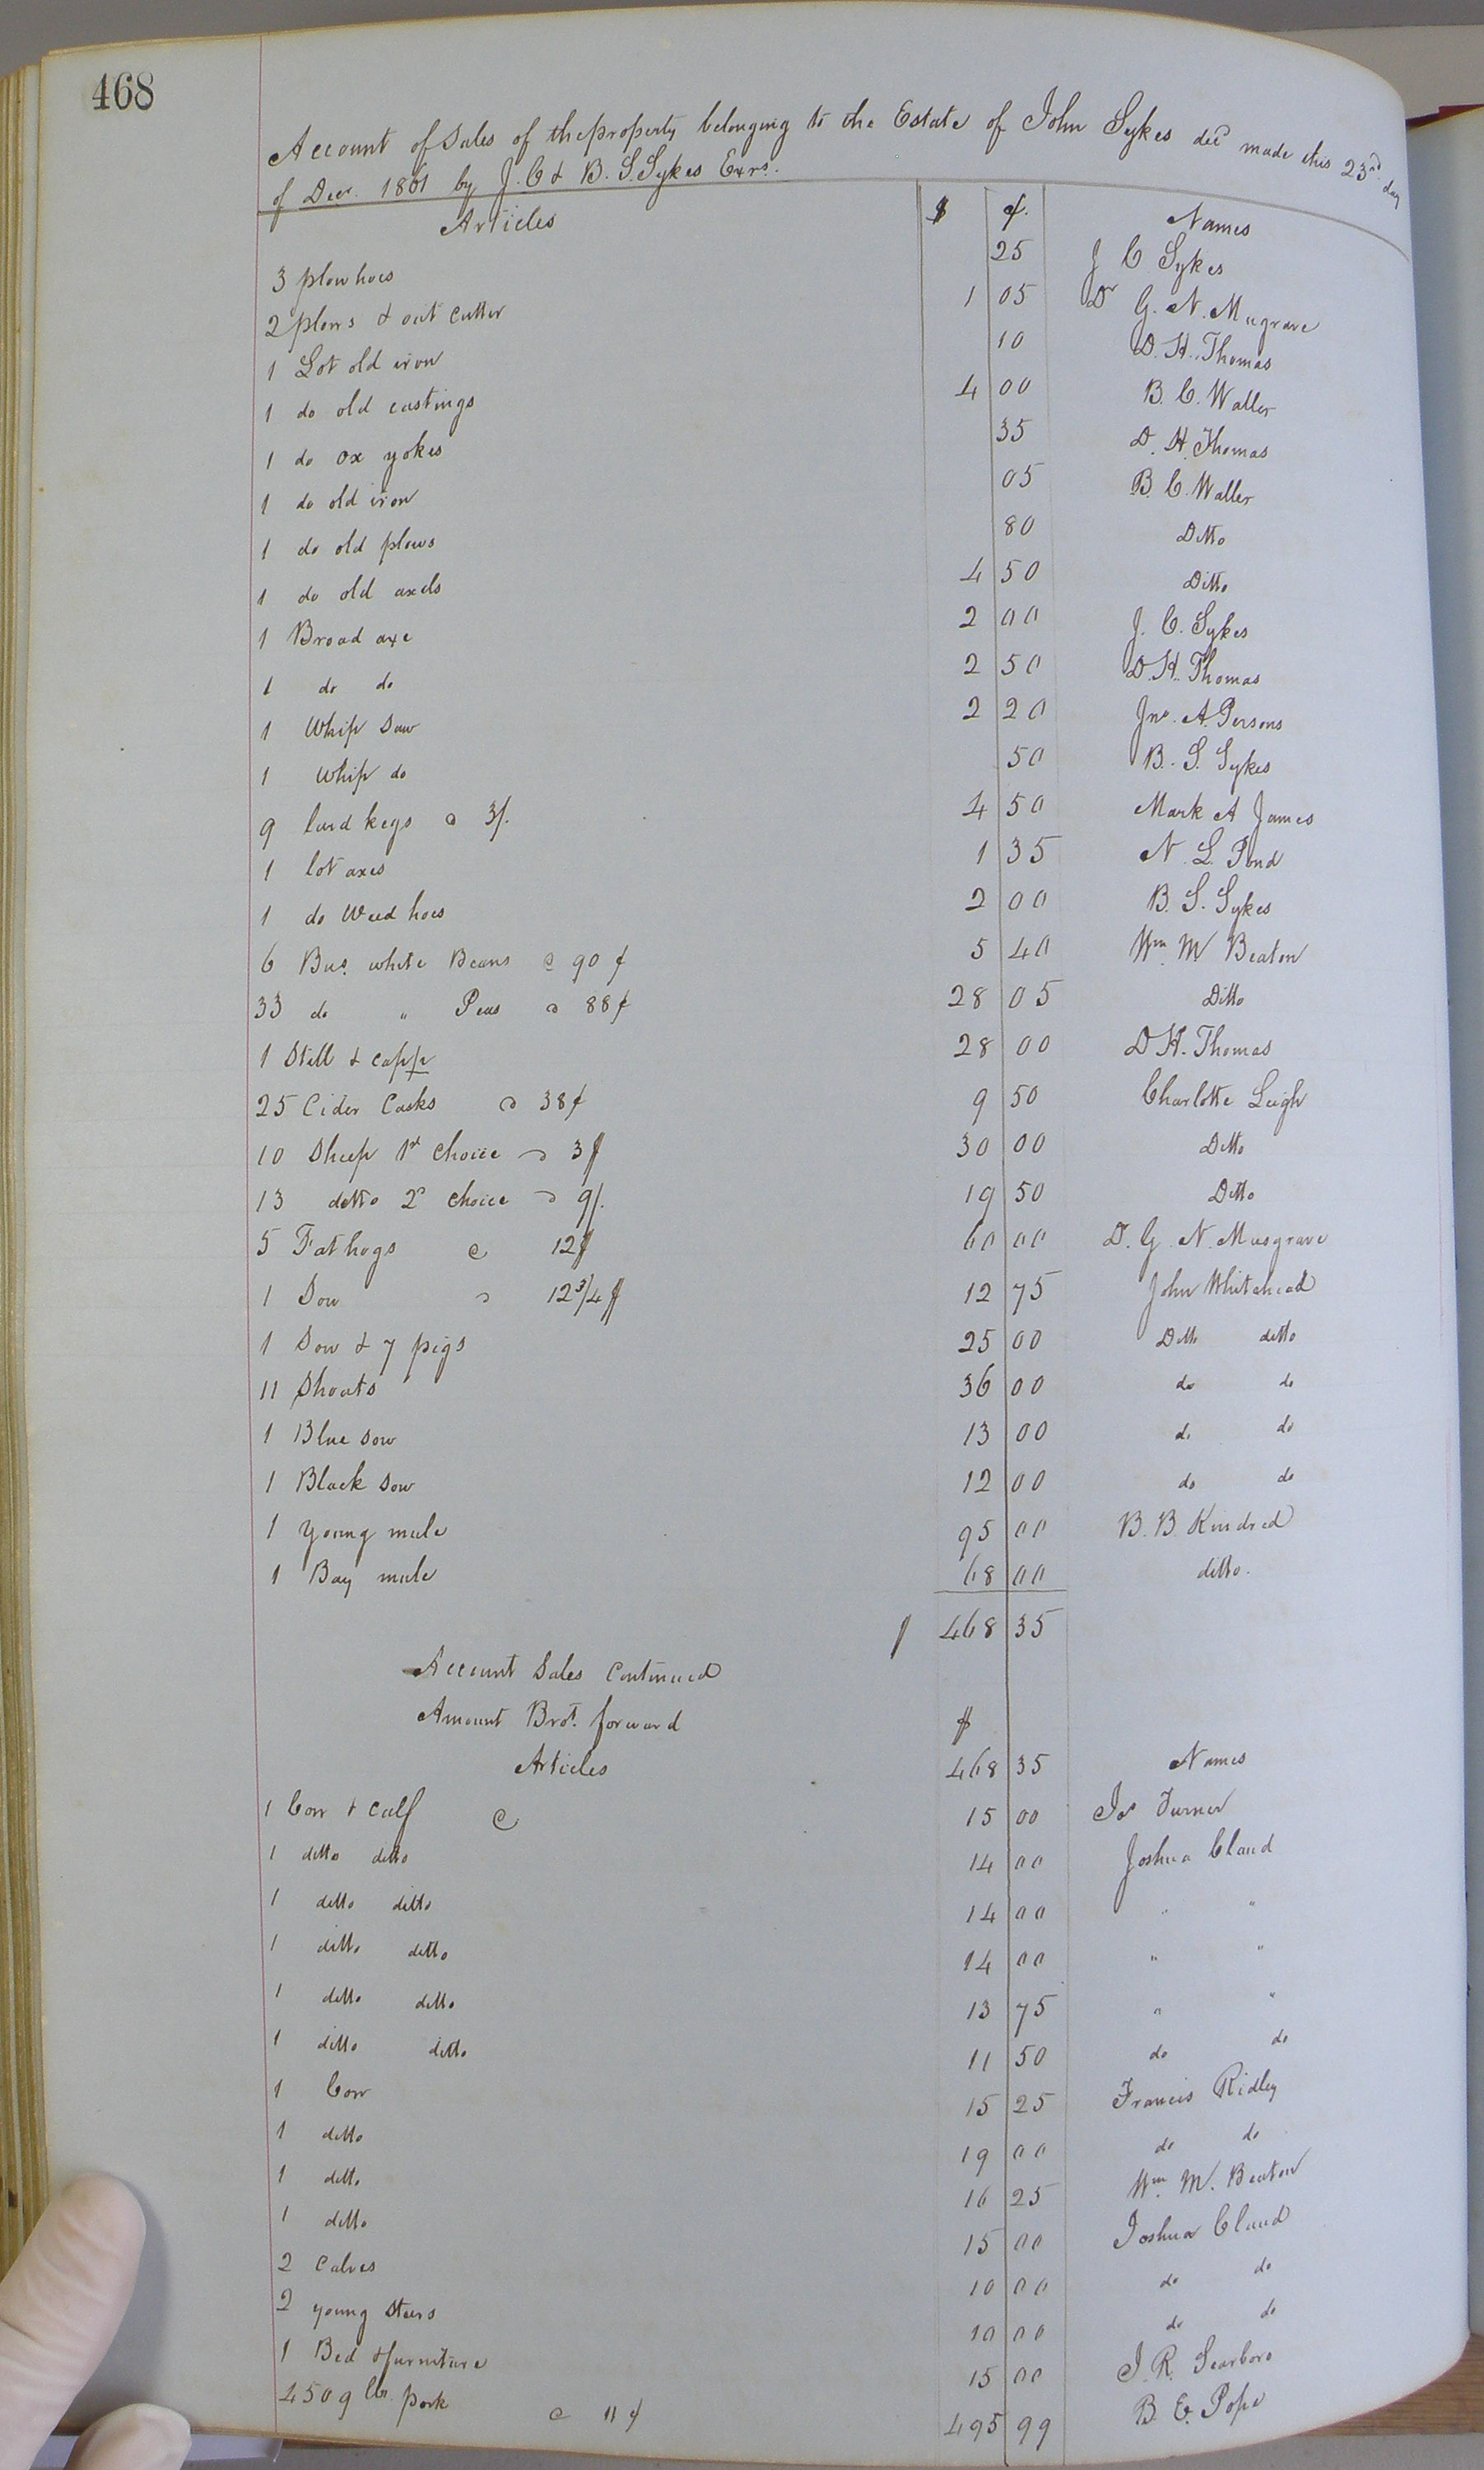 468
Account of Sales of the property belonging to the Estate of John Sykes decd made this 23rd day
of Decr. 1861 by J. C & B. S. Sykes Exrs.
Articles $ ¢. Names
3 plow hoes 25 J C Sykes
2 plows & out cutter 1 05 Dr G. N. Musgrave
1 Lot old iron 10 D. H. Thomas
1 do old castings 4 00 B. C. Waller
1 do ox yokes 35 D. H. Thomas
1 do old iron 05 B. C. Waller
1 do old plows 80 Ditto
1 do old axels 4 50 Ditto
1 Broad axe 2 00 J. C. Sykes
1 do do 2 50 D. H. Thomas
1 Whip Saw 2 20 Jno. A. Persons
1 Whip do 50 B. S. Sykes
9 lard kegs @ 3/. 4 50 Mark A James
1 lot axes 1 35 N. L. Pond
1 do Weed hoes 2 00 B. S. Sykes
6 Bus. white Beans @ 90 ¢ 5 40 Wm. M Beaton
33 do " Peas @ 88¢ 28 05 Ditto
1 Still & capp 28 00 D H. Thomas
25 Cider Casks @ 38¢ 9 50 Charlotte Leigh
10 Sheep 1st Choice @ 3$ 30 00 Ditto
13 ditto 2d Choice @ 9/. 19 50 Ditto
5 Fat hogs @ 12$ 60 00 D. G. N. Musgrave
1 Sow @ 12 3/4 $ 12 75 John Whitehead
1 Sow & 7 pigs 25 00 Ditto ditto
11 Shoats 36 00 do do
1 Blue Sow 13 00 do do
1 Black Sow 12 00 do do
1 Young mule 95 00 B. B. Kindred
1 Bay mule 68 00 ditto.
$ 468 35
Account Sales Continued
Amount Brot. forward $
Articles 468 35 Names
1 Cow & Calf @ 15 00 Jas Turner
1 ditto ditto 14 00 Joshua Claud
1 ditto ditto 14 00 " "
1 ditto ditto 14 00 " "
1 ditto ditto 13 75 " "
1 ditto ditto 11 50 do do
1 Cow 15 25 Francis Ridley
1 ditto 19 00 do do
1 ditto 16 25 Wm. M. Beaton
1 ditto 15 00 Joshua Claud
2 Calves 10 00 do do
2 young Steers 10 00 do do
1 Bed & furniture 15 00 J. R. Scarboro
4509 lbs. pork @ 11 ¢ 495 99 B. E. Pope